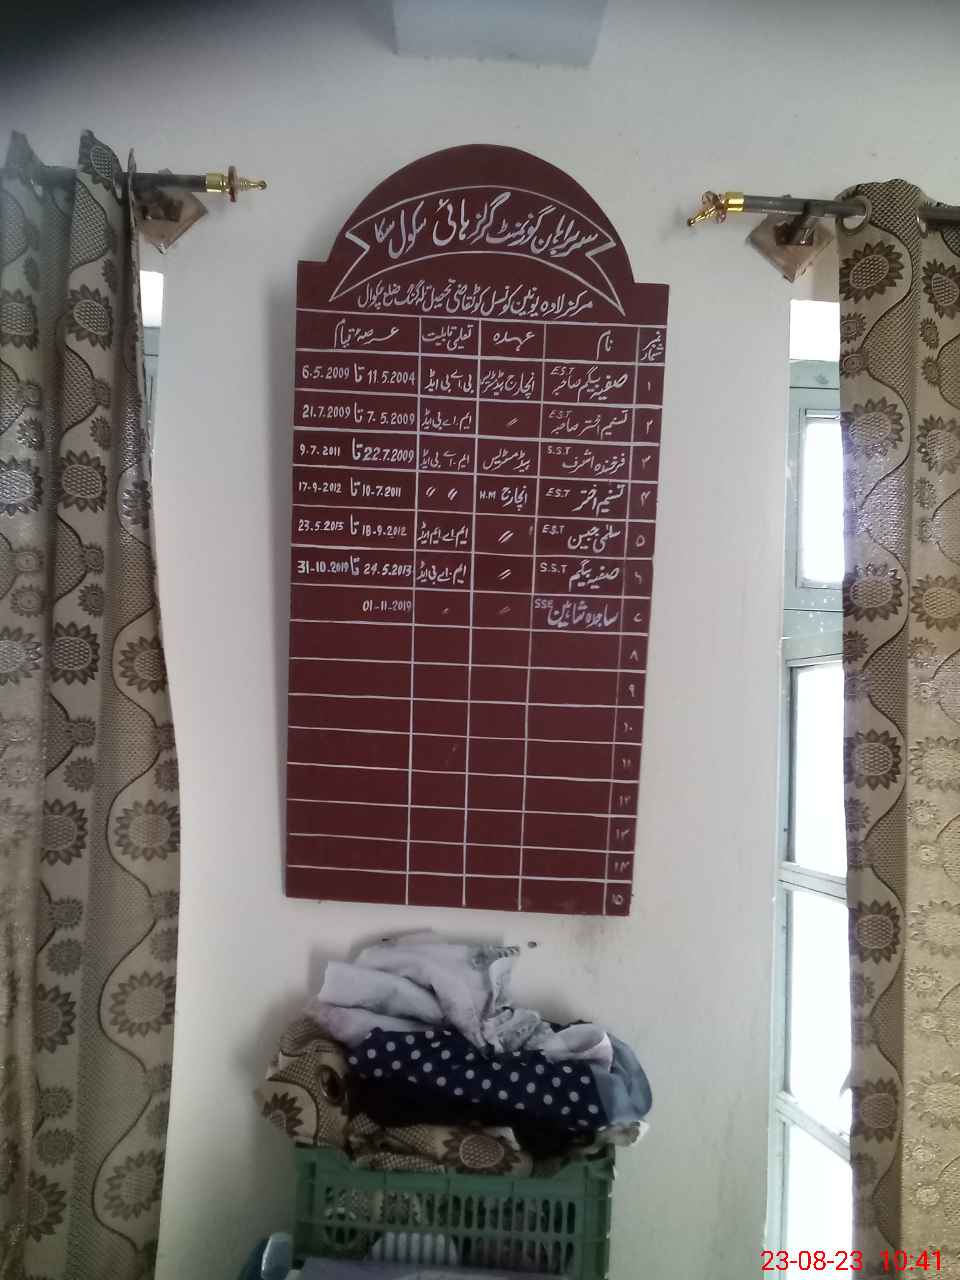 سربراہان گورنمنٹ گرلز ہائی سکول سکا
مرکز لادہ یونین کونسل کوٹقاضی تحصیل تلہ گنگ ضلع چکوال
نمبر شمار نام عہدہ تعلیمی قابلیت عرصۂ قیام
۱ صفیہ بیگم صاحبہ E.S.T انچارج ہیڈمسٹریس بی اے بی ایڈ 11.5.2004 تا 6-5.2009
۲ تسنیم اختر صاحبہ E.S.T // ایم.اے بی ایڈ 7.5.2009 تا 21.7.2009
۳ فرخندہ اشرف S.S.T ہیڈمسٹریس ایم.اے بی ایڈ 22.7.2009 تا 9.7.2011
۴ تسنیم اختر E.S.T انچارج H.M // // 10-7.2011 تا 17-9-2012
۵ سلمٰی جبین E.S.T // ایم اے ایم ایڈ 18-9.2012 تا 23.5.2013
۶ صفیہ بیگم S.S.T // ایم.اے بی ایڈ 24.5.2013 تا 31-10.2019
۷ ساجدہ شاہین SSE // 01-11-2019
۸
۹
۱۰
۱۱
۱۲
۱۳
۱۴
۱۵
23-08-23 10:41